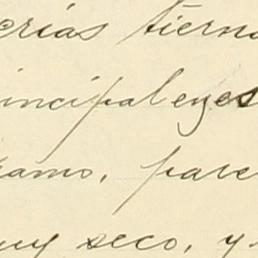 erias tierna
incipal eges
amo, pare
uy seco, y